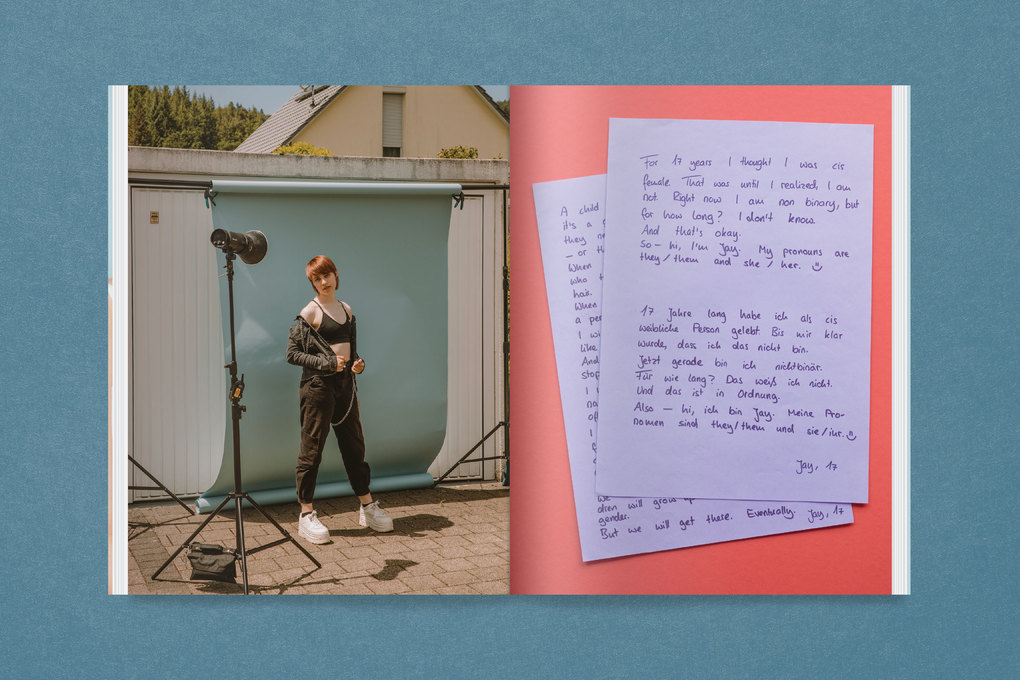 For 17 years I thought I was cis
female. That was until I realized, I am
not. Right now I am non binary, but
for how long? I don't know.
And that's okay.
So – hi, I'm Jay. My pronouns are
they/them and she/her. ツ
17 Jahre lang habe ich als cis
weibliche Person gelebt. Bis mir klar
wurde, dass ich das nicht bin.
Jetzt gerade bin ich nichtbinär.
Für wie lang? Das weiß ich nicht.
Und das ist in Ordnung.
Also – hi, ich bin Jay. Meine Pro-
nomen sind they/them und sie/ihr. ツ
Jay, 17
A child
it's a
they
– or
When
who
hair.
When
a
I
like
And
stop
I
I
we
dren will grow up
gender.
But we will get there. Eventually. Jay, 17